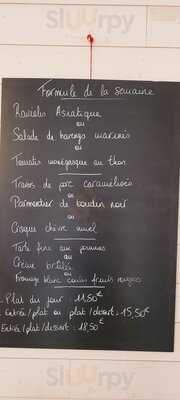 Sluurpy
Formule de la semaine
Raviolis Asiatique
ou
Salade de harengs marinés
ou
Tomates monégasque au thon
Travers de porc caramélisés
ou
Parmentier de boudin noir
ou
Croque chèvre miel
Tarte fine aux pommes
ou
Crème brûlée
ou
Fromage blanc coulis fruits rouges
. Plat du jour : 11,50€
. Entrée/plat ou plat/dessert : 15,50€
Entrée/plat/dessert : 18,50€
Sluurpy